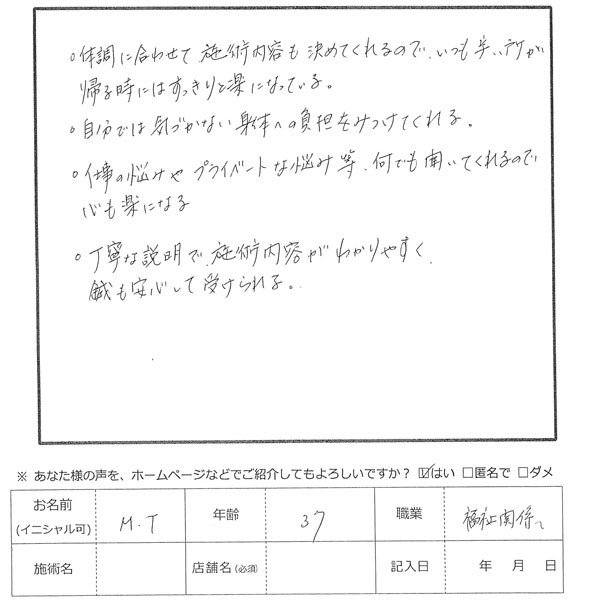 ○体調に合わせて施術内容も決めてくれるので、いつも辛い所が
帰る時にはすっきりと楽になっている。
○自分では気づかない身体への負担をみつけてくれる。
○仕事の悩みやプライベートな悩み等、何でも聞いてくれるので
心も楽になる
○丁寧な説明で、施術内容がわかりやすく、
鍼も安心して受けられる。
※ あなた様の声を、ホームページなどでご紹介してもよろしいですか？ ☑はい □匿名で □ダメ
お名前 (イニシャル可) M.T 年齢 37 職業 福祉関係
施術名 店舗名(必須) 記入日 年 月 日